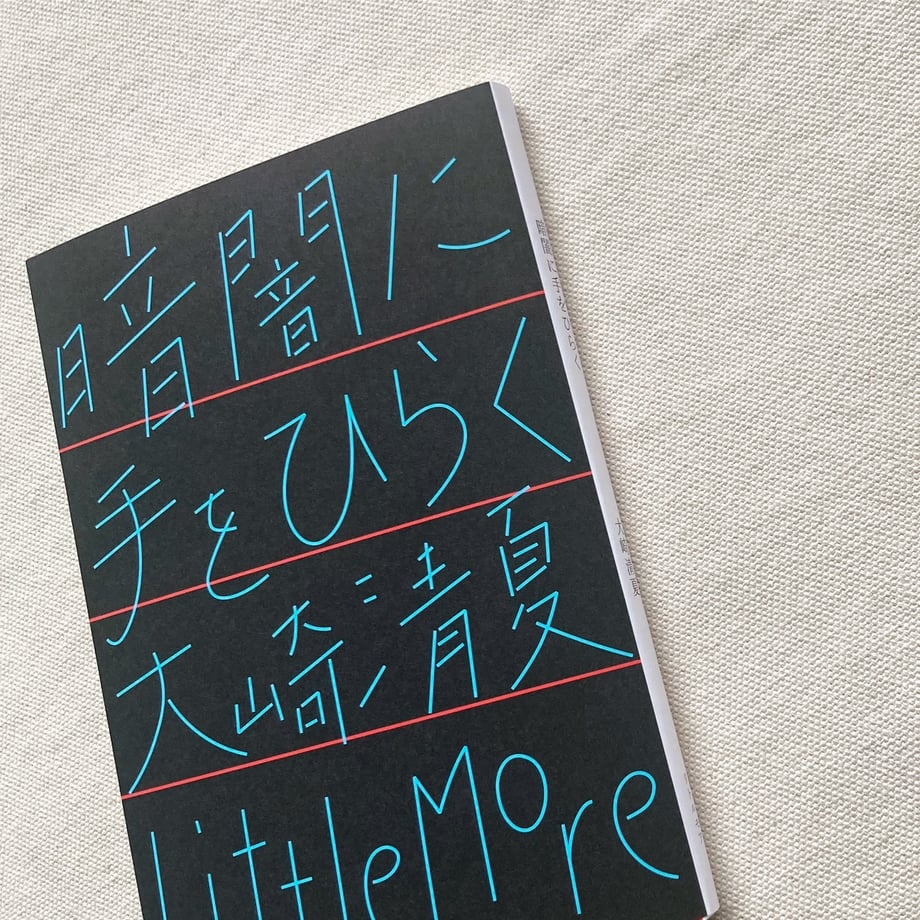 暗闇に
手をひらく
大崎清夏
LittleMore
暗闇に手をひらく
大崎清夏